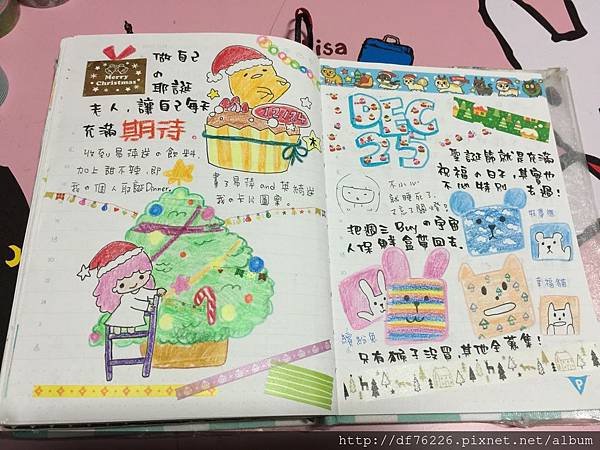 Merry
Christmas
做自己
の
耶誕
老人，讓自己每天
充滿期待。
收到易蒨送の飲料，
加上甜不辣，即
我の個人耶誕Dinner。
畫了易蒨and
我の卡片圖案。
isa
DEC
25
聖誕節就是充滿
祝福の日子，其實也
不必特別去過！
不小心
就睡死了，
又忘了關燈。
把週三Buyの宇宙
人保鮮盒裝回去。
幸福貓
繽紛兔
只有猴子沒買，其他全蒐集！
P
http://df76226.pixnet.net/album